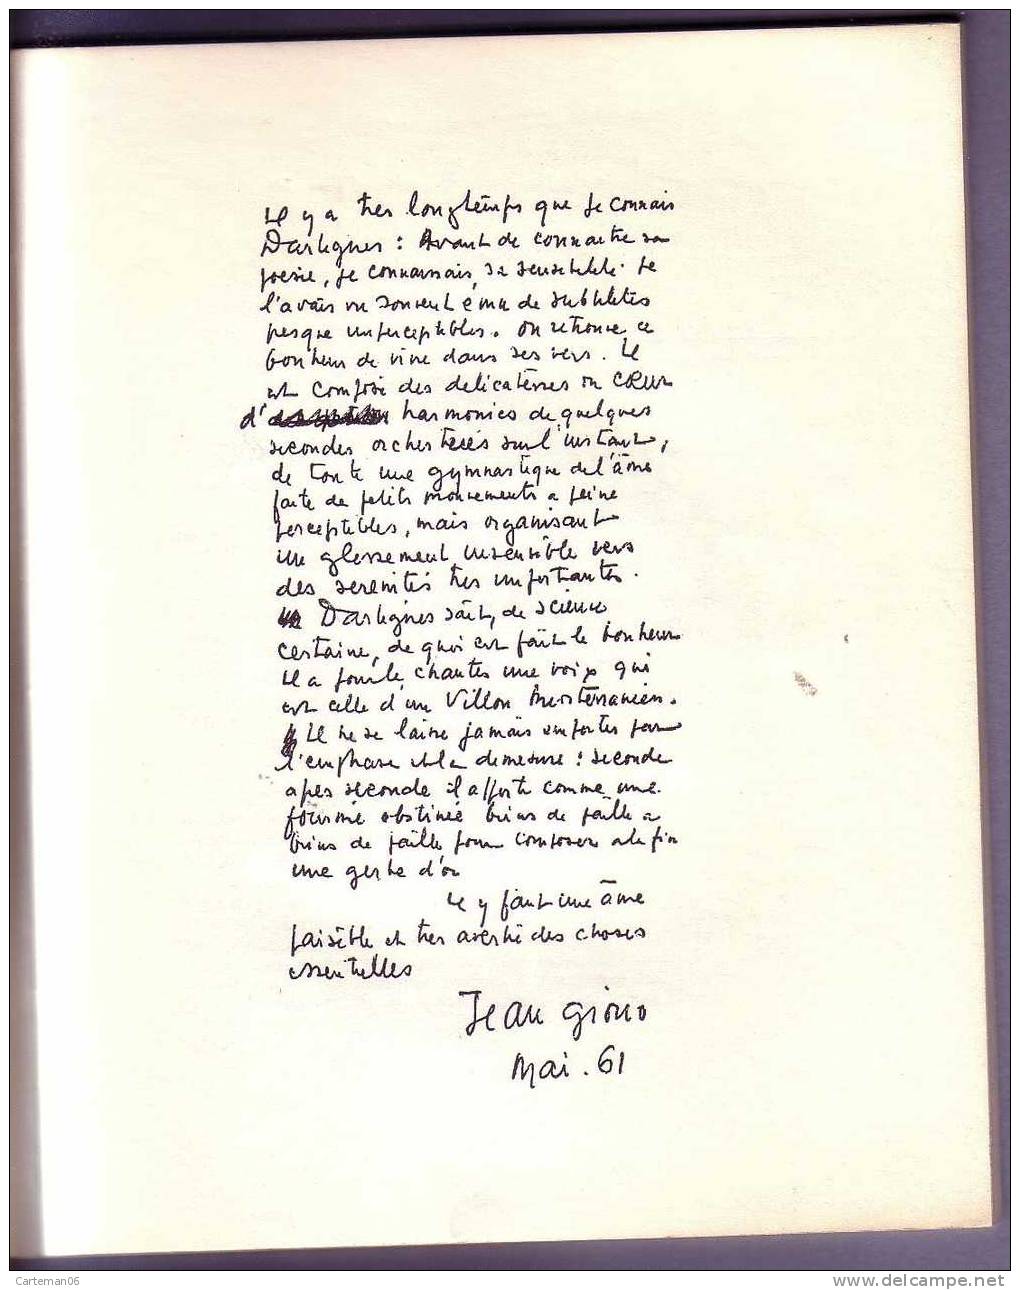 Il y a tres longtemps que je connais
Dartignes : Avant de connaitre sa
poesie, je connaissais sa sensibilité. Je
l'avais vu souvent ému de subtilités
presque imperceptibles. On retrouve ce
bonheur de vivre dans ses vers. Il
est composé des delicatesses du cœur
d' harmonies de quelques
secondes orchestrées sur l'instant,
de toute une gymnastique de l'âme
faite de petits mouvements a peine
perceptibles, mais organisant
un glissement insensible vers
des serenités tres importantes.
Dartignes sait, de science
certaine, de quoi est fait le bonheur
il a pour le chanter une voix qui
est celle d'un Villon Mediterranéen.
Il ne se laisse jamais emporter par
l'emphase et la demesure : seconde
apres seconde il apporte comme une
fourmi obstinée brins de paille a
brins de paille pour composer a la fin
une gerbe d'or
Il y faut une âme
paisible et tres avertie des choses
essentielles
Jean Giono
Mai. 61
Carteman06
www.delcampe.net